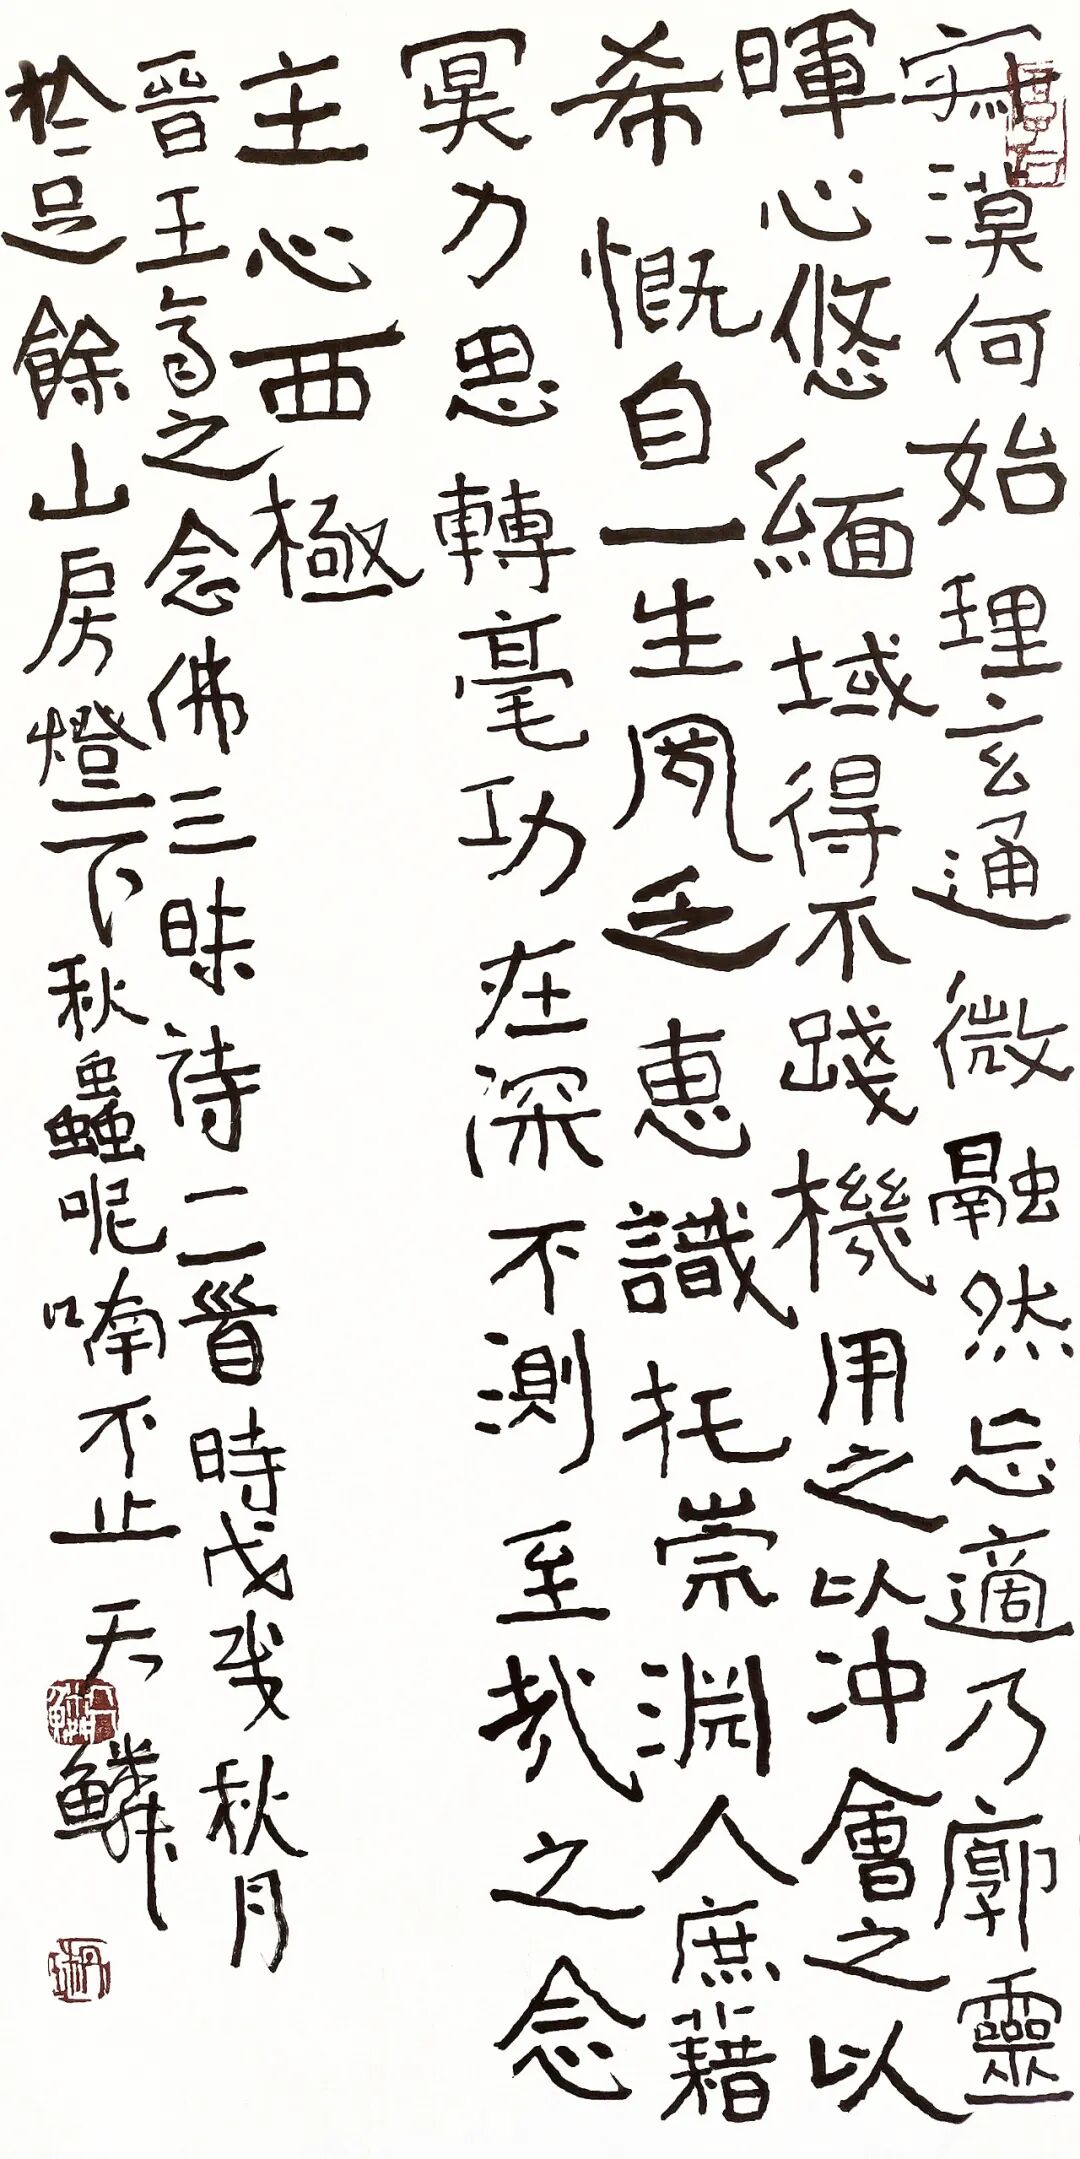 寂漠何始理玄通微融然忘適乃廓靈
暉心悠緬域得不踐機用之以冲會之以
希慨自一生夙乏惠識托崇淵人庶藉
冥力思轉毫功在深不測至哉之念
主心西極
晉王喬之念佛三昧詩二首時戊戌秋月
於足餘山房燈下秋蟲呢喃不止天鱗